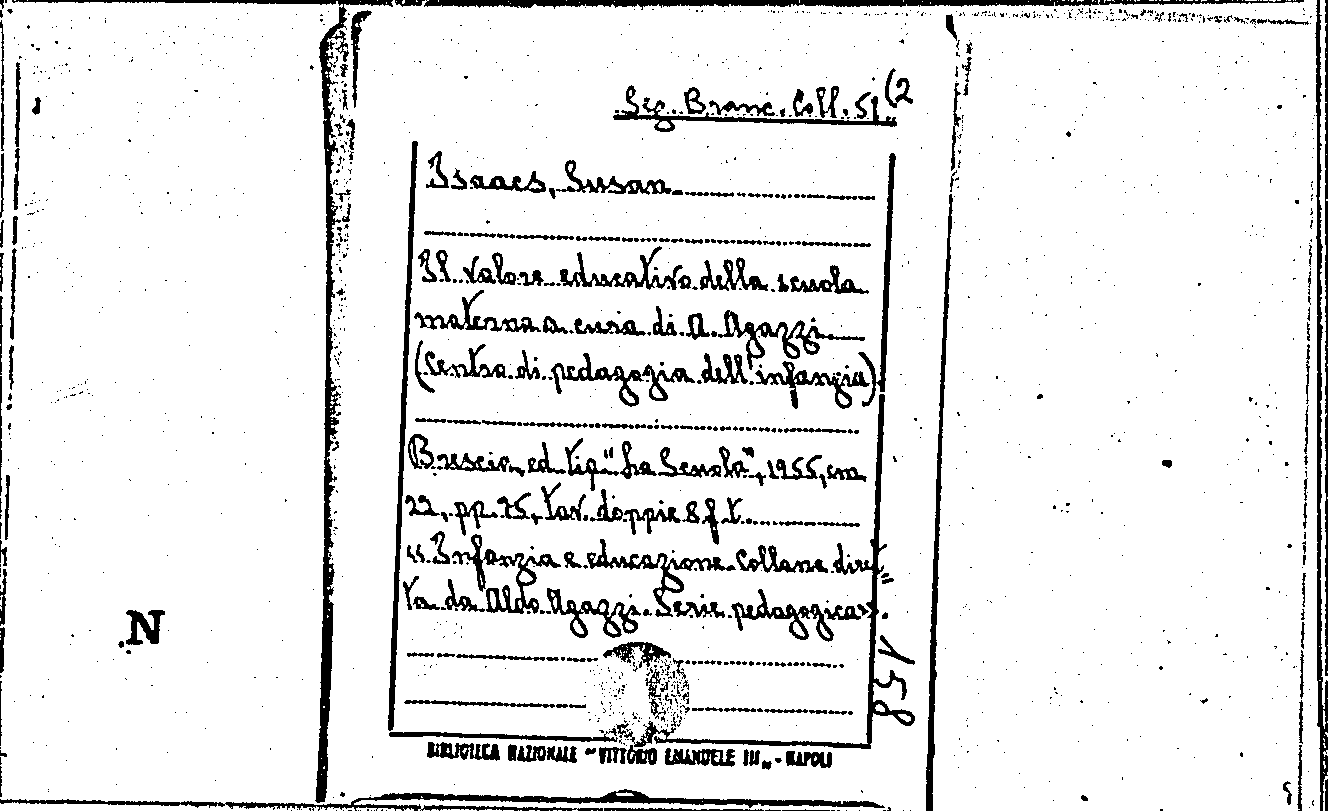 Seg. Branc. Coll. 51 (2
Isaacs, Susan
Il valore educativo della scuola
materna a cura di A. Agazzi.
(Centro di pedagogia dell'infanzia)
Brescia, ed. tip. "La Scuola", 1955, cm
22, pp. 75, tav. doppie 8 f. t.
«Infanzia e educazione. Collana diret=
ta da Aldo Agazzi. Serie pedagogica».
158
N
BIBLIOTECA NAZIONALE "VITTORIO EMANUELE III„ - NAPOLI